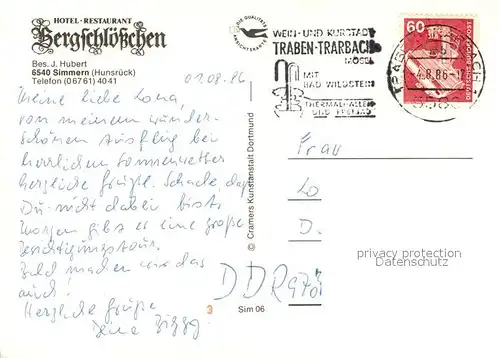 HOTEL-RESTAURANT
Bergschlößchen
Bes. J. Hubert
6540 Simmern (Hunsrück)
Telefon (06761) 4041
01.08.86
Meine liebe Lona,
von meinem wunder-
schönen Ausflug bei
herrlichem Sonnenwetter
herzliche Grüße. Schade, daß
Du nicht dabei bist.
Morgen gibt es eine große
Besichtigungstour.
Bald machen wir das
auch!
Herzliche Grüße
Deine
3
Sim 06
© Cramers Kunstanstalt Dortmund
DIE QUALITÄTS
ANSICHTSKARTE
WEIN- UND KURSTADT
TRABEN-TRARBACH
MOSEL
MIT
BAD WILDSTEIN
THERMALHALLEN
UND FREIBAD
TRABEN-TRARBACH
4.8.86
60
DEUTSCHE BUNDESPOST
Frau
Lo
D.
DDR 970
privacy protection
Datenschutz